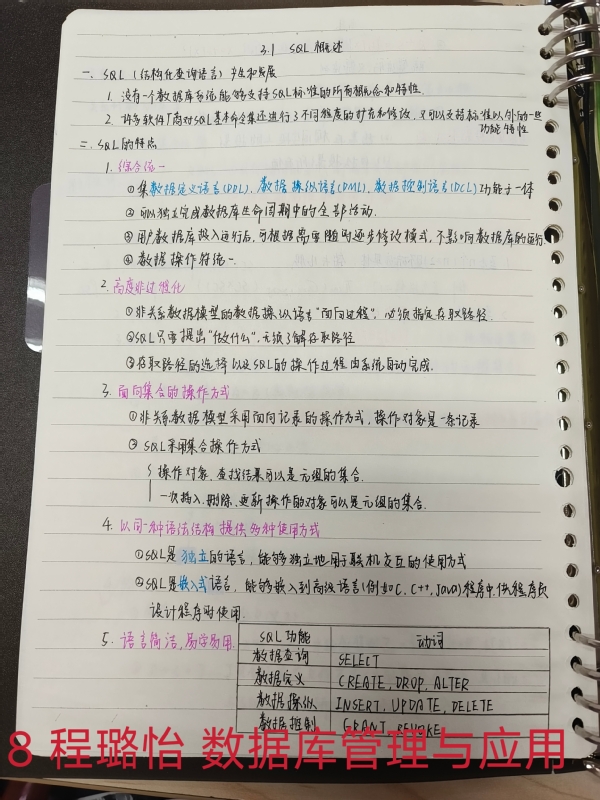 3.1 SQL概述
一、SQL(结构化查询语言)产生和发展
1. 没有一个数据库系统能够支持SQL标准的所有概念和特性
2. 许多软件厂商对SQL基本命令集还进行了不同程度的扩充和修改,又可以支持标准以外的一些
功能特性
二、SQL的特点
1. 综合统一
①集数据定义语言(DDL)、数据操纵语言(DML)、数据控制语言(DCL)功能于一体
②可以独立完成数据库生命周期中的全部活动.
③用户数据库投入运行后,可根据需要随时逐步修改模式,不影响数据库的运行
④数据操作符统一.
2. 高度非过程化
①非关系数据模型的数据操纵语言"面向过程",必须指定存取路径.
②SQL只要提出"做什么",无须了解存取路径
③存取路径的选择以及SQL的操作过程由系统自动完成.
3. 面向集合的操作方式
①非关系数据模型采用面向记录的操作方式,操作对象是一条记录
② SQL采用集合操作方式
操作对象、查找结果可以是元组的集合.
一次插入、删除、更新操作的对象可以是元组的集合.
4. 以同一种语法结构提供多种使用方式
①SQL是独立的语言,能够独立地用于联机交互的使用方式
②SQL是嵌入式语言,能够嵌入到高级语言(例如C、C++、Java)程序中,供程序员
设计程序时使用
5. 语言简洁,易学易用.
SQL功能 动词
数据查询 SELECT
数据定义 CREATE、DROP、ALTER
数据操纵 INSERT、UPDATE、DELETE
数据控制 GRANT、REVOKE
8 程璐怡 数据库管理与应用